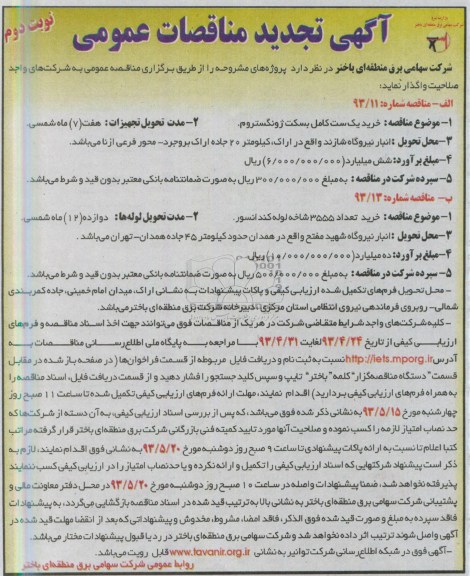 نوبت دوم
آگهی تجدید مناقصات عمومی
شرکت سهامی برق منطقه‌ای باختر در نظر دارد پروژه‌های مشروحه را از طریق برگزاری مناقصه عمومی به شرکت‌های واجد
صلاحیت واگذار نماید:
الف- مناقصه شماره: ۹۳/۱۱
۱- موضوع مناقصه: خرید یک ست کامل بسکت ژونگستروم. ۲- مدت تحویل تجهیزات: هفت(۷) ماه شمسی.
۳- محل تحویل: انبار نیروگاه شازند واقع در اراک، کیلومتر ۲۰ جاده اراک بروجرد- محور فرعی ازنا می‌باشد.
۴- مبلغ برآورد: شش میلیارد(۶/۰۰۰/۰۰۰/۰۰۰) ریال
۵- سپرده شرکت در مناقصه: به مبلغ ۳۰۰/۰۰۰/۰۰۰ ریال به صورت ضمانتنامه بانکی معتبر بدون قید و شرط می‌باشد.
ب- مناقصه شماره: ۹۳/۱۳
۱- موضوع مناقصه: خرید تعداد ۳۵۵۵ شاخه لوله کندانسور. ۲- مدت تحویل لوله‌ها: دوازده(۱۲) ماه شمسی.
۳- محل تحویل: انبار نیروگاه شهید مفتح واقع در همدان حدود کیلومتر ۴۵ جاده همدان- تهران می‌باشد.
۴- مبلغ برآورد: ده میلیارد(۱۰/۰۰۰/۰۰۰/۰۰۰) ریال
۵- سپرده شرکت در مناقصه: به مبلغ ۵۰۰/۰۰۰/۰۰۰ ریال به صورت ضمانتنامه بانکی معتبر بدون قید و شرط می‌باشد.
- محل تحویل فرم‌های تکمیل شده ارزیابی کیفی و پاکات پیشنهادات به نشانی اراک، میدان امام خمینی، جاده کمربندی
شمالی- روبروی فرماندهی نیروی انتظامی استان مرکزی- دبیرخانه شرکت برق منطقه‌ای باختر می‌باشد.
- کلیه شرکت‌های واجد شرایط متقاضی شرکت در هر یک از مناقصات فوق می‌توانند جهت اخذ اسناد مناقصه و فرم‌های
ارزیابی کیفی از تاریخ ۹۳/۴/۲۴ لغایت ۹۳/۴/۳۱ با مراجعه به پایگاه ملی اطلاع‌رسانی مناقصات به
آدرس http://iets.mporg.ir نسبت به ثبت نام و دریافت فایل مربوطه از قسمت فراخوان‌ها (در صفحه باز شده در مقابل
قسمت "دستگاه مناقصه‌گزار" کلمه "باختر" تایپ و سپس کلید جستجو را فشار دهید و از قسمت دریافت فایل، اسناد مناقصه را
به همراه فرم‌های ارزیابی کیفی بردارید) اقدام نمایند، مهلت ارائه فرم‌های ارزیابی کیفی تکمیل شده تا ساعت ۱۱ صبح روز
چهارشنبه مورخ ۹۳/۵/۱۵ به نشانی ذکر شده فوق می‌باشد، که پس از بررسی اسناد ارزیابی کیفی، به آن دسته از شرکت‌ها که
حد نصاب امتیاز لازمه را کسب نموده و صلاحیت آنها مورد تایید کمیته فنی بازرگانی شرکت برق منطقه‌ای باختر قرار گرفته مراتب
کتبا اعلام تا نسبت به ارائه پاکات پیشنهادی تا ساعت ۹ صبح روز دوشنبه مورخ ۹۳/۵/۲۰ به نشانی فوق اقدام نمایند، لازم به
ذکر است پیشنهاد شرکتهایی که اسناد ارزیابی کیفی را تکمیل و ارائه نکرده و یا حدنصاب امتیاز را در ارزیابی کیفی کسب ننمایند
پذیرفته نخواهد شد، ضمنا پیشنهادات واصله در ساعت ۱۰ صبح روز دوشنبه مورخ ۹۳/۵/۲۰ در محل دفتر معاونت مالی و
پشتیبانی شرکت سهامی برق منطقه‌ای باختر به نشانی بالا به ترتیب قید شده در اسناد مناقصه بازگشایی می‌گردد، به پیشنهادات
فاقد سپرده به مبلغ و صورت قید شده فوق الذکر، فاقد امضا، مشروط، مخدوش و پیشنهاداتی که بعد از انقضا مهلت قید شده در
آگهی واصل شوند ترتیب اثر داده نخواهد شد و شرکت برق منطقه‌ای باختر در رد یا قبول پیشنهادات مختار می‌باشد.
- آگهی فوق در شبکه اطلاع‌رسانی شرکت توانیر به نشانی www.tavanir.org.ir قابل رویت می‌باشد.
روابط عمومی شرکت سهامی برق منطقه‌ای باختر